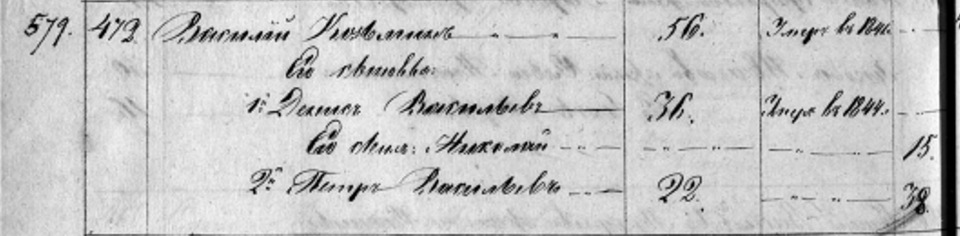 579. 472. Василий Козьминъ " " 56. Умеръ въ 1846. "
Его сыновья:
1й Денисъ Васильевъ 36. Умеръ въ 1844. "
Его сынъ: Николай " " " " " 15.
2й Петръ Васильевъ " 22. " " 38.